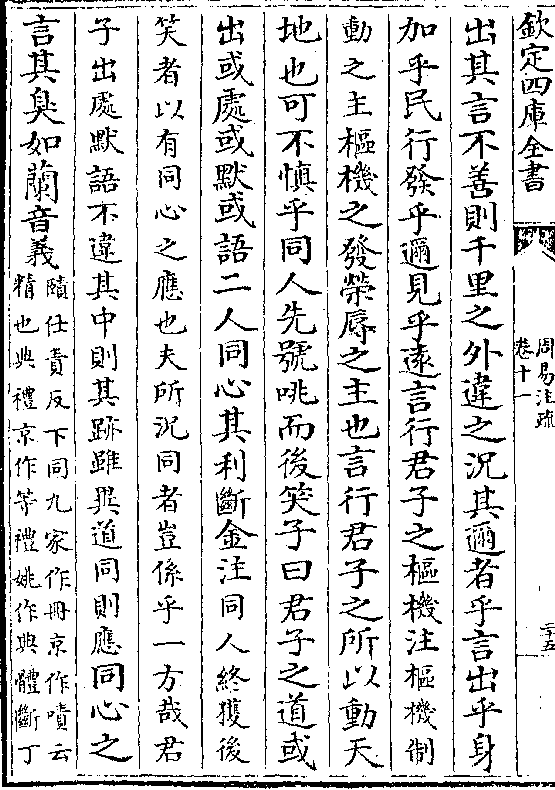 欽定四庫全書
周易注疏
卷十一
二十五
出其言不善則千里之外違之況其邇者乎言出乎身
加乎民行發乎邇見乎遠言行君子之樞機注樞機制
動之主樞機之發榮辱之主也言行君子之所以動天
地也可不慎乎同人先號咷而後笑子曰君子之道或
出或處或默或語二人同心其利斷金注同人終獲後
笑者以有同心之應也夫所況同者豈係乎一方哉君
子出處默語不違其中則其跡雖異道同則應同心之
言其臭如蘭音義
賾仕責反下同九家作冊京作嘖云
精也典禮京作等禮姚作典體斷丁